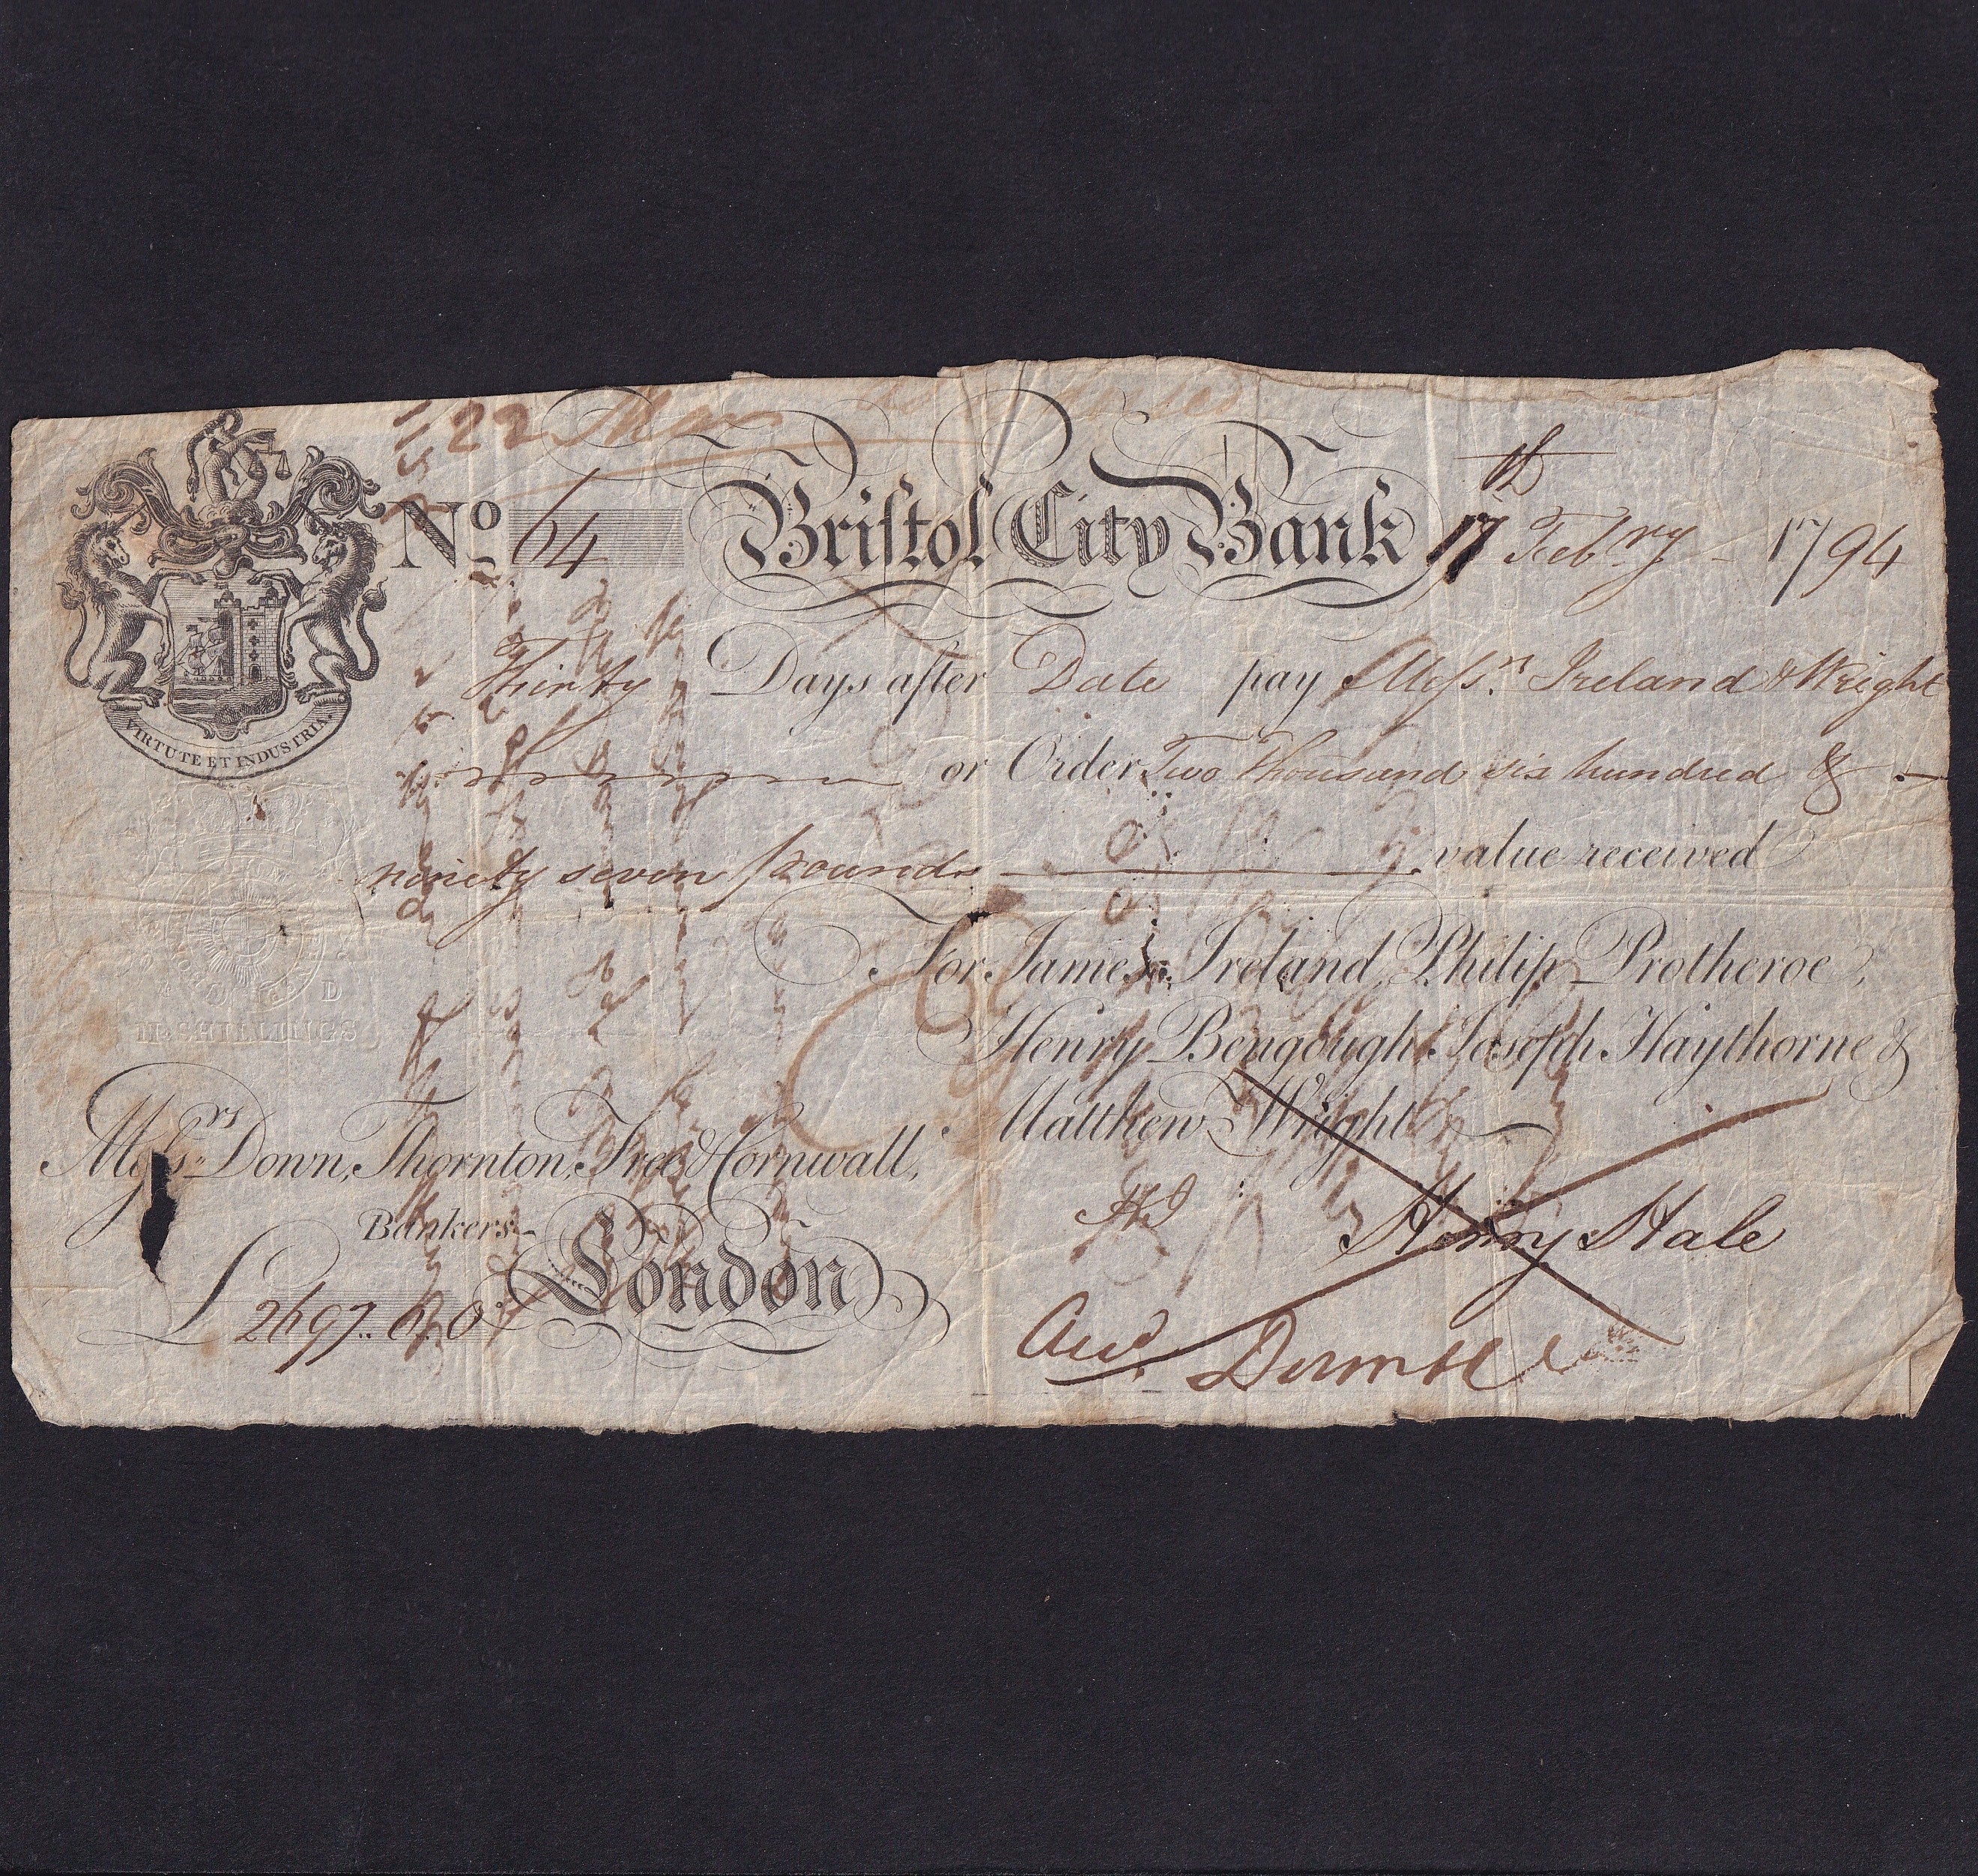 22
No 64 Briſtol City Bank 17th Feb.ry 1794
VIRTUTE ET INDUSTRIA.
Thirty Days after Date pay Meſs.rs Ireland & Wright
or Order Two thousand six hundred &
ninety seven pounds value received
For James Ireland, Philip Protheroe,
Henry Bengough, Joseph Haythorne &
Matthew Wright
II SHILLINGS
Meſs.rs Down, Thornton, Free & Cornwall,
Bankers
London
Henry Hale
£ 2697.. 0.. 0